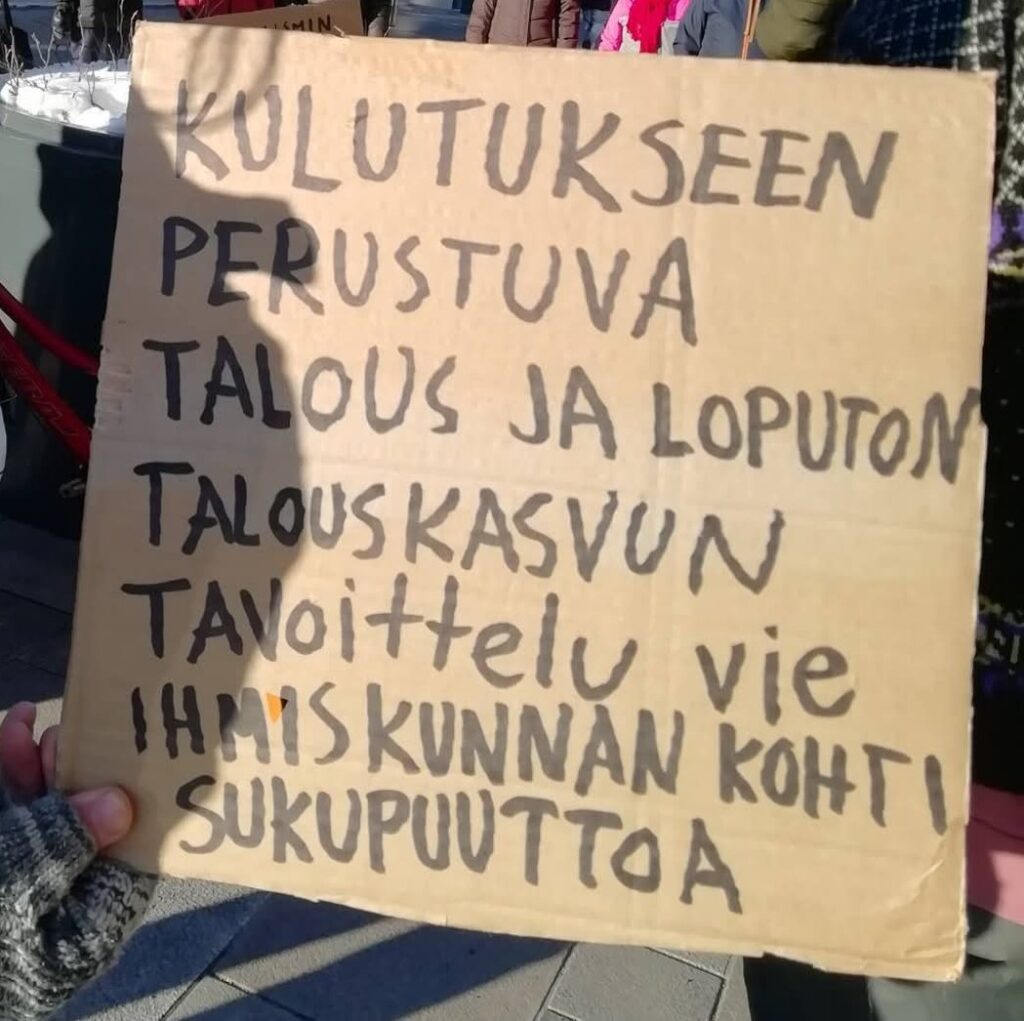 SMIN
KULUTUKSEEN
PERUSTUVA
TALOUS JA LOPUTON
TALOUSKASVUN
TAVoittelu vie
IHMISKUNNAN KOHTI
SUKUPUUTTOA